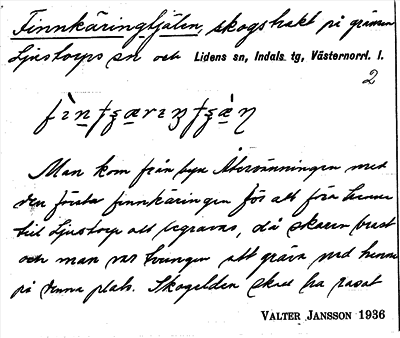 Finnkäringtjälen, skogstrakt på gränsen
Ljustorps sn och Lidens sn, Indals tg, Västernorrl. l.
2
Man kom från byn Återvänningen med
den första finnkäringen för att föra henne
till Ljustorp att begravas, då skaren brast
och man var tvungen att gräva ned henne
på denna plats. Skogselden skall ha rasat
VALTER JANSSON 1936